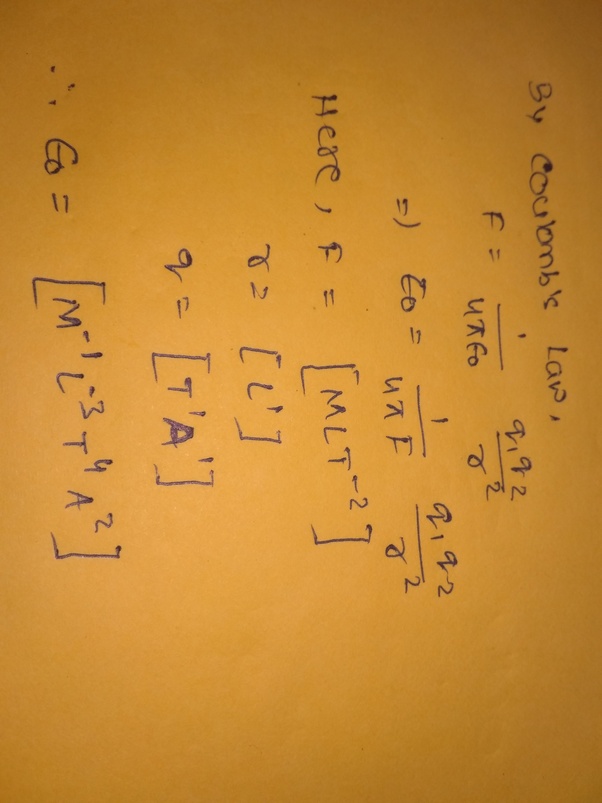 By Coulomb's Law,
F = 1/4πε0 q1q2/r2
=) ε0 = 1/4πF q1q2/r2
Here, F = [MLT-2]
r = [L1]
q = [T1A1]
∴ ε0 = [M-1L-3T4A2]